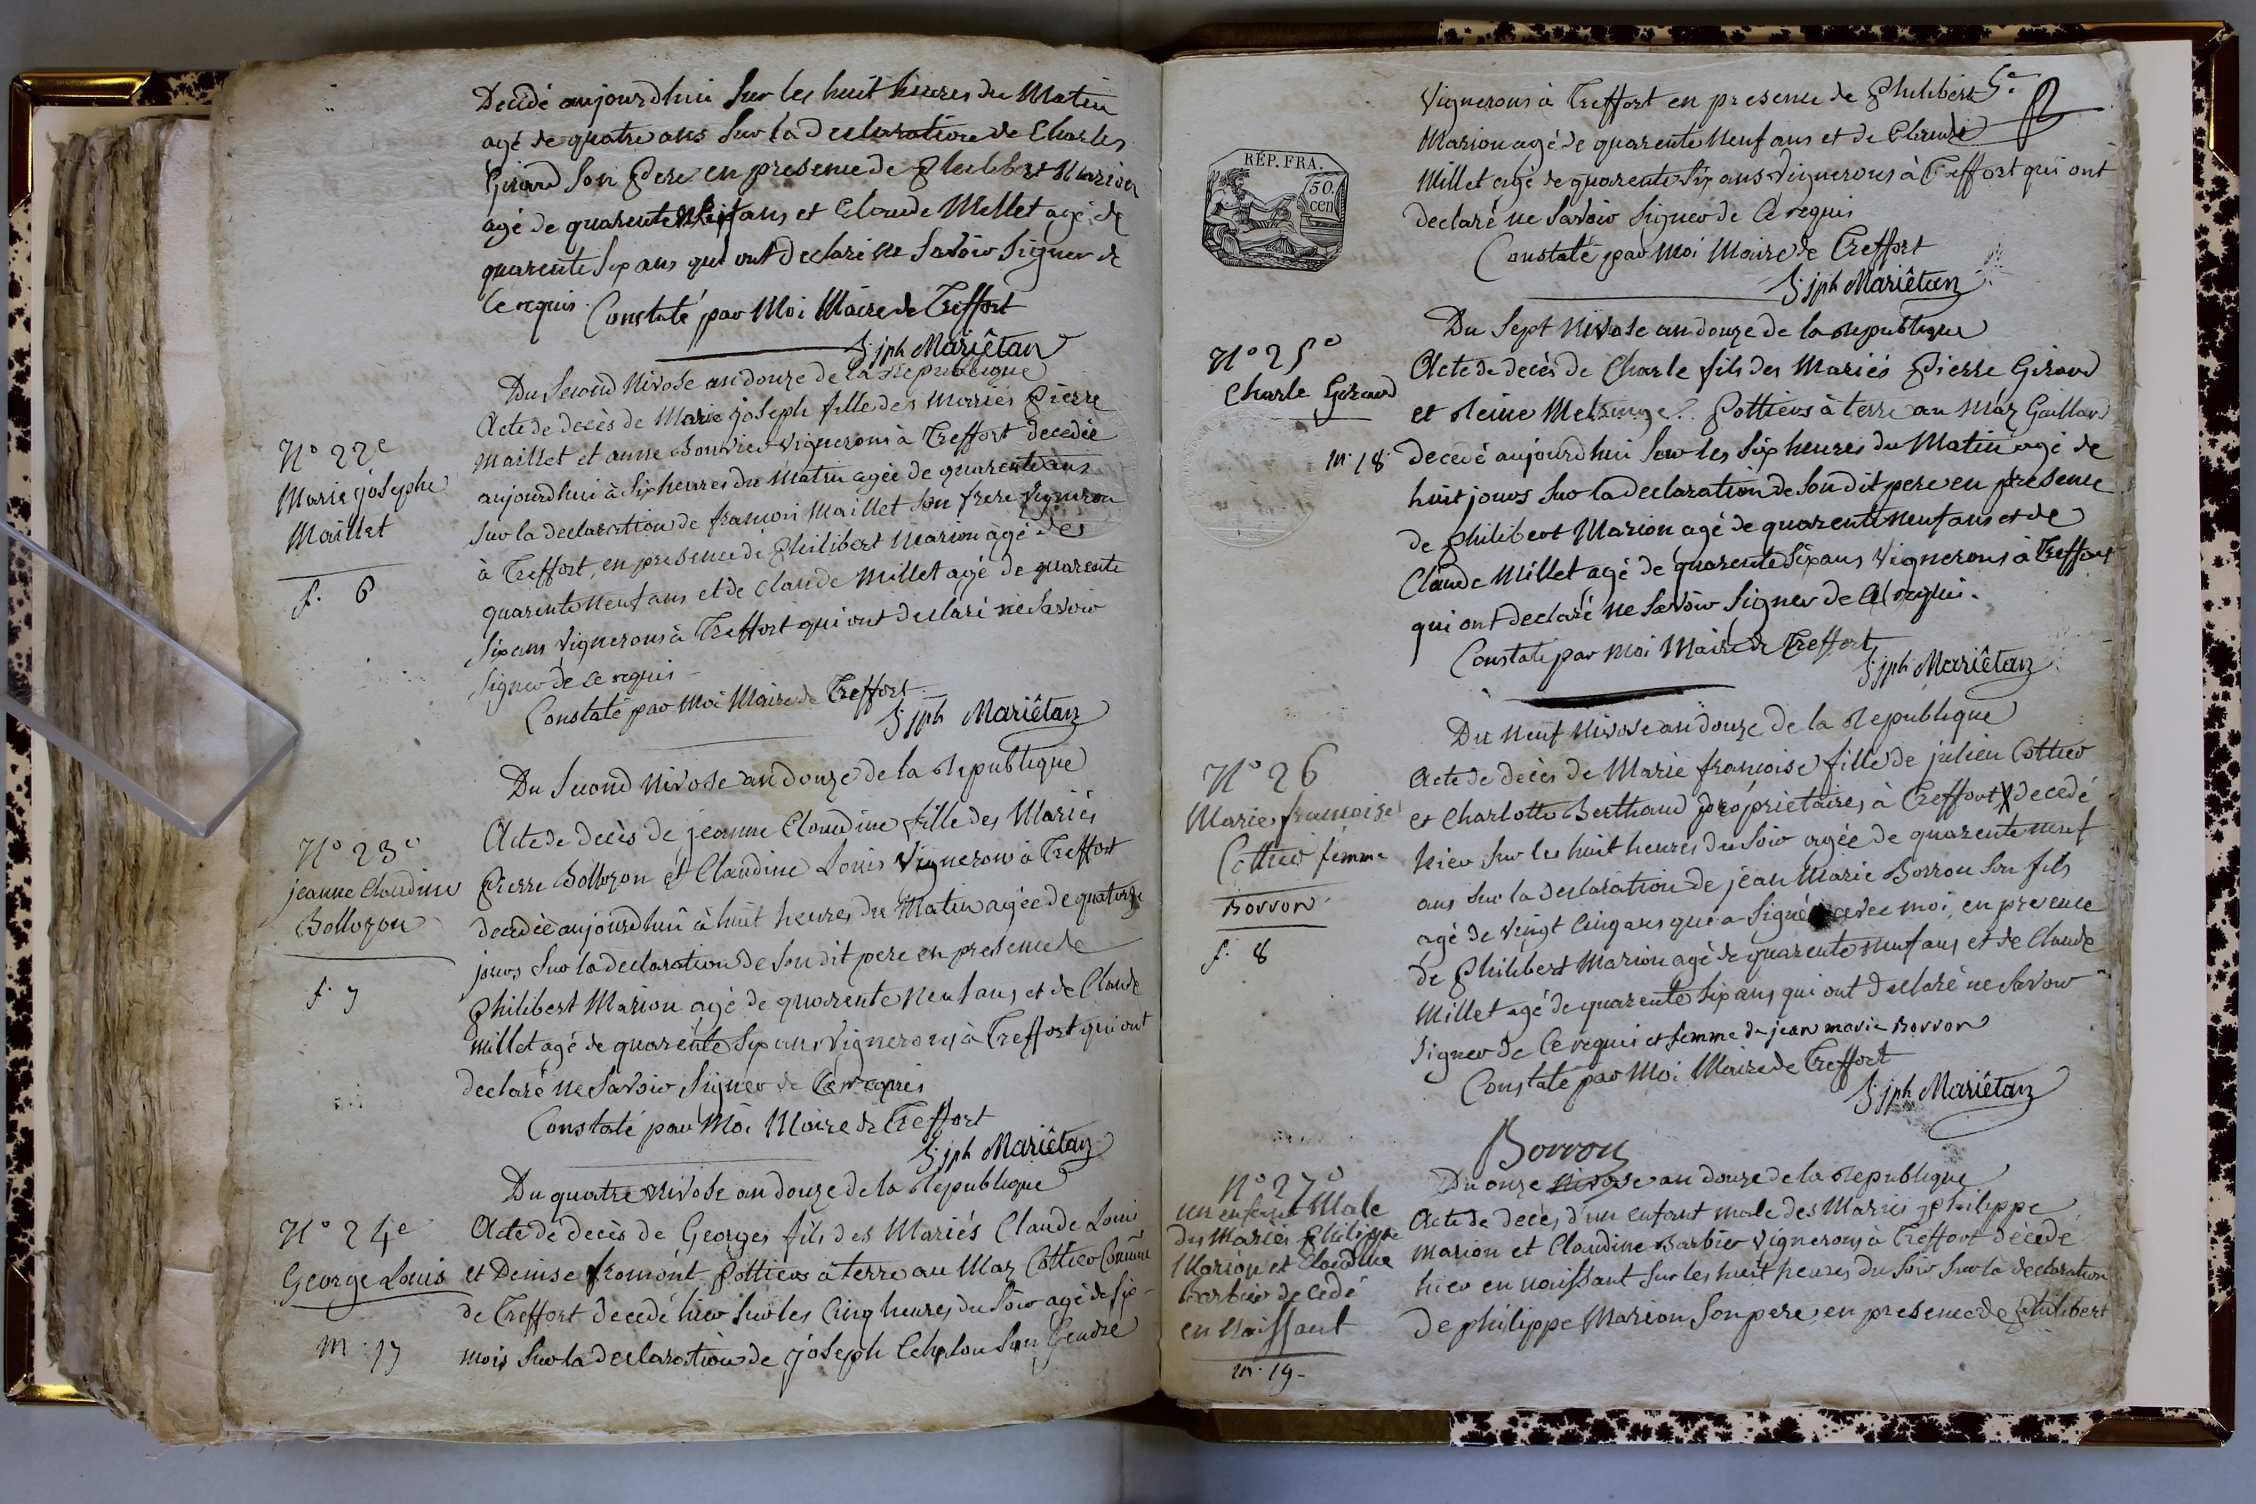 Decidé aujourdhui Sur les huit heures du Matin
agé de quatre ans Sur la declaration de Charles
Girard Son Pere en presence de Philibert Marion
agé de quarente neuf ans et Claude Millet agé de
quarente Six ans qui ont declaré ne Savoir Signer de
Ce requis Constaté par Moi Maire de Treffort
S. jph Mariêtan
Du Second Nivose an douze de la Republique
N° 22e
Marie joSephe
Maillet
f. 6
Acte de decès de Marie joSeph fille des Mariés Pierre
Maillet et anne Bouvier Vignerons à Treffort decedée
aujourdhui à Six heures du Matin agée de quarente ans
Sur la declaration de francois Maillet Son frere Vigneron
à Treffort, en presence de Philibert Marion agé de
quarente Neuf ans et de Claude Millet agé de quarente
Six ans Vignerons à Treffort qui ont declaré ne Savoir
Signer de Ce requis
Constaté par Moi Maire de Treffort
S. jph Mariêtan
Du Second Nivose an douze de la Republique
N° 23e
jeanne Claudine
Bollozon
f. 7
Acte de decès de jeanne Claudine fille des Mariés
Pierre Bollozon et Claudine Louis Vignerons à Treffort
decedée aujourdhui à huit heures du Matin agée de quatorze
jours Sur la declaration de Son dit pere en presence de
Philibert Marion agé de quarente Neuf ans et de Claude
Millet agé de quarente Six ans Vignerons à Treffort qui ont
declaré ne Savoir Signer de Ce requis
Constaté par Moi Maire de Treffort
S. jph Mariêtan
Du quatre Nivose an douze de la Republique
N° 24e
George Louis
m. 17
Acte de decès de Georges fils des Mariés Claude Louis
et Denise fromont Pottiers à terre au Maz Cottier Comune
de Treffort decedé hier Sur les Cinq heures du Soir agé de Six
mois Sur la declaration de joSeph Chelon Son Gendre
5e
Vignerons à Treffort en presence de Philibert
Marion agé de quarente Neuf ans et de Claude
Millet agé de quarente Six ans Vignerons à Treffort qui ont
declaré ne Savoir Signer de Ce requis
RÉP. FRA.
50.
cen
Constaté par Moi Maire de Treffort
S. jph Mariêtan
Du Sept Nivose an douze de la Republique
N° 25e
Charle Girard
m. 18.
Acte de decès de Charle fils des Mariés Pierre Girard
et Reine Pottiers à terre au Maz Gaillard
decedé aujourdhui Sur les Six heures du Matin agé de
huit jours Sur la declaration de Son dit pere en presence
de philibert Marion agé de quarente Neuf ans et de
Claude Millet agé de quarente Six ans Vignerons à Treffort
qui ont declaré ne Savoir Signer de Ce requis.
Constaté par Moi Maire de Treffort
S. jph Mariêtan
Du Neuf Nivose an douze de la Republique
N° 26
Marie francoise
Cottier femme
Borron
f. 8
Acte de decès de Marie francoise fille de julien Cottier
et Charlotte Berthaud proprietaires à Treffort decedé
hier Sur les huit heures du Soir agée de quarente neuf
ans Sur la declaration de jean Marie Borron Son fils
agé de Vingt Cinq ans qui a Signé avec moi, en presence
de Philibert Marion agé de quarente neuf ans et de Claude
Millet agé de quarente Six ans qui ont declaré ne Savoir
Signer de Ce requis et femme de jean marie Borron
Constaté par Moi Maire de Treffort
S. jph Mariêtan
Borron
Du onze Nivose an douze de la Republique
N° 27e
un enfant Male
des Mariés Philippe
Marion et Claudine
Barbier decedé
en Naissant
m. 19.
Acte de decès d'un enfant male des Mariés Philippe
Marion et Claudine Barbier Vignerons à Treffort decedé
hier en naissant Sur les huit heures du Soir Sur la declaration
de philippe Marion Son pere, en presence de Philibert